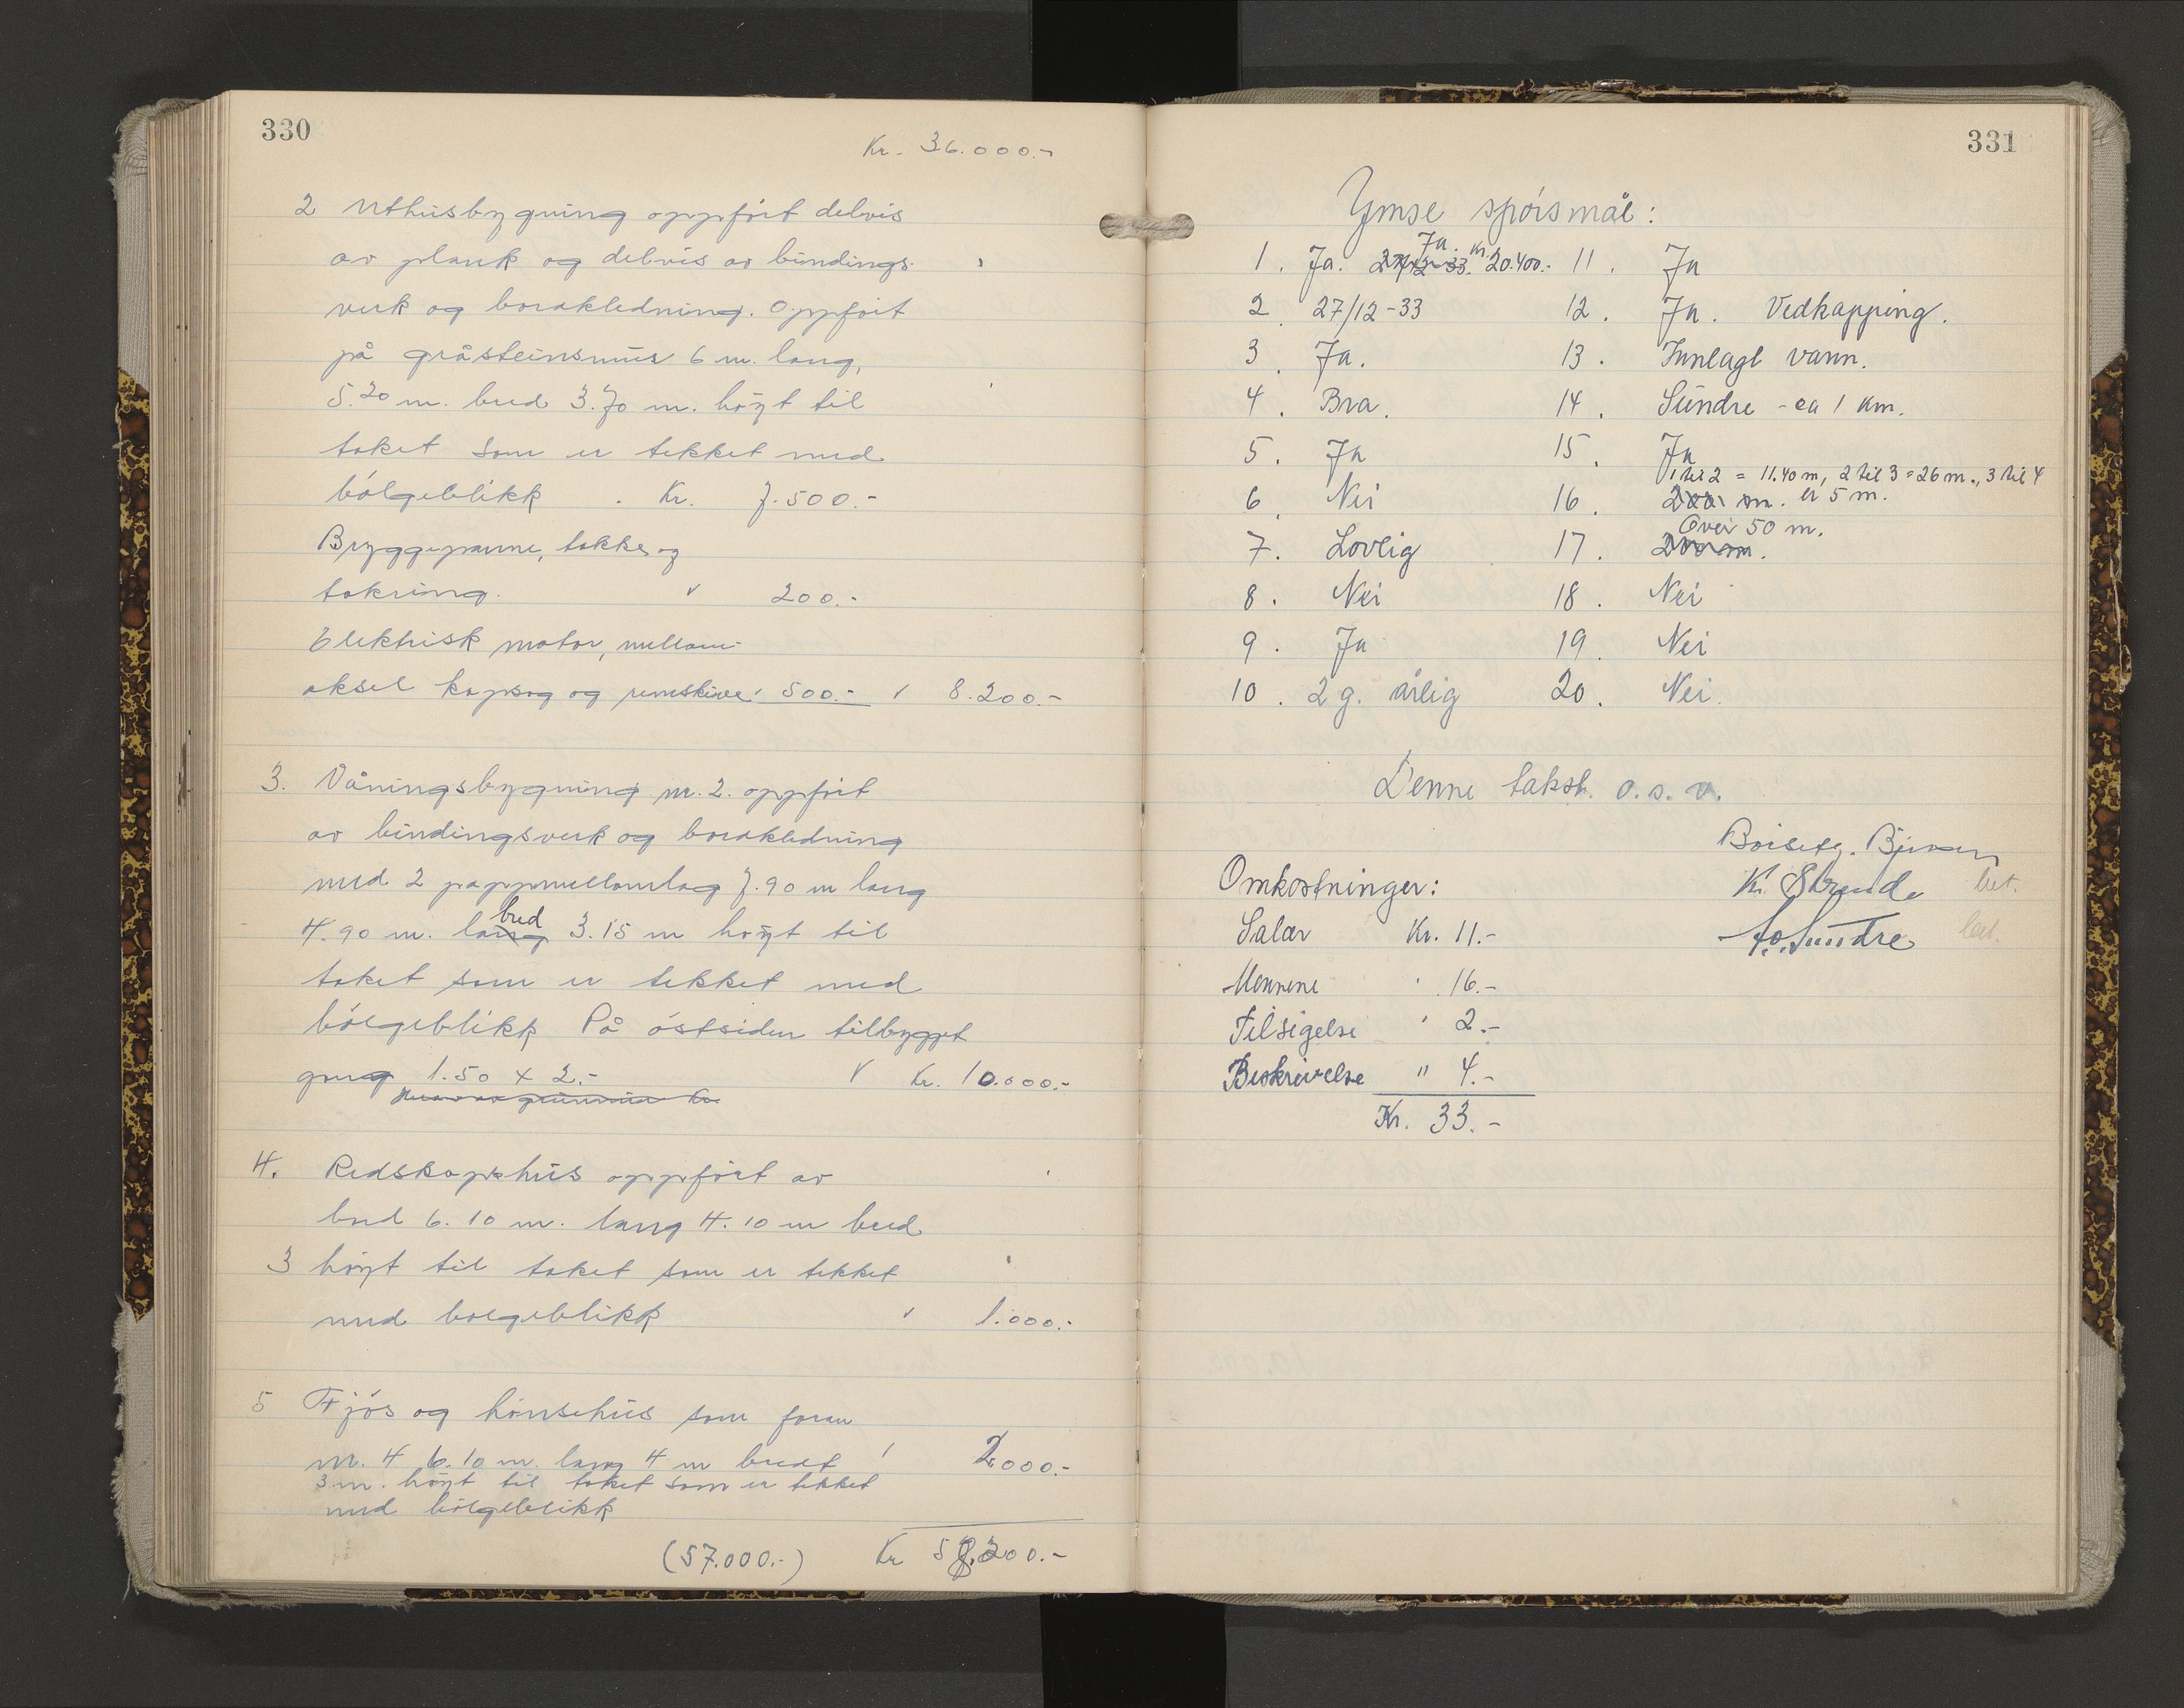 330
Kr. 36.000.-
2 Uthusbygning oppført delvis
av plank og delvis av bindings-
verk og bordkledning. Oppført
på gråsteinsmur 6 m. lang,
5.20 m. bred 3.70 m. høyt til
taket som er tekket med
bølgeblikk . Kr. 7.500.-
Bryggepanne, lokk og
lokring. " 200.-
Elektrisk motor, mellom-
aksel kapsag og remskive " 500.- " 8.200.-
3. Våningsbygning nr. 2. oppført
av bindingsverk og bordkledning
med 2 pappmellomlag 7.90 m lang
bred
4.90 m. lang 3.15 m høyt til
taket som er tekket med
bølgeblikk På østsiden tilbygget
gang 1.50 x 2.- " Kr. 10.000.-
4. Redskapshus oppført av
bord 6.10 m. lang 4.10 m bred
3 høyt til taket som er tekket
med bølgeblikk " 1.000.-
5 Fjøs og hønsehus som foran
nr. 4 6.10 m. lang 4 m bredt " 2.000.-
3 m. høyt til taket som er tekket
med bølgeblikk
(57.000.-) Kr 58.200.-
331
Ymse spørsmål:
Ja. Kr.
1. Ja. 27/12-33. 20.400.- 11. Ja
2. 27/12-33 12. Ja. Vedkapping.
3. Ja. 13. Innlagt vann.
4. Bra. 14. Sundre - ca 1 km.
5. Ja 15. Ja
1 til 2 = 11.40 m, 2 til 3 = 26 m., 3 til 4
6. Nei 16. 200 m. er 5 m.
Over 50 m.
7. Lovlig 17. 200 m.
8. Nei 18. Nei
9. Ja 19. Nei
10. 2 g. årlig 20. Nei.
Denne takst. o.s.v.
Omkostninger:
K. Strande bet.
Salær Kr. 11.-
Sundre bet.
Mennene " 16.-
Tilsigelse " 2.-
Beskrivelse " 4.-
Kr. 33.-